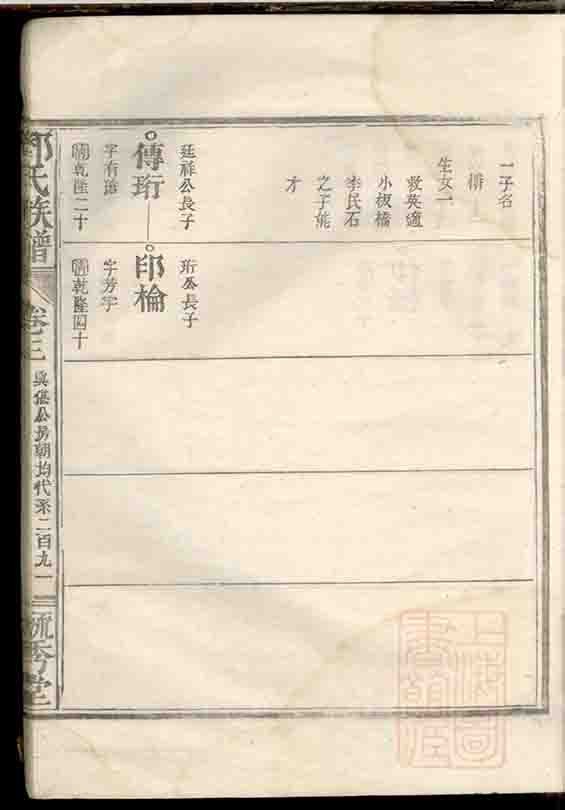 一子名
構
生女一
教英適
小板橋
李民石
之子能
才
廷祥公長子
傳珩
字有濬
清乾隆二十
珩公長子
印棆
字芳宇
清乾隆四十
氏族譜
卷之三
公房朝均代系二百九一
秀堂
上海圖書館藏